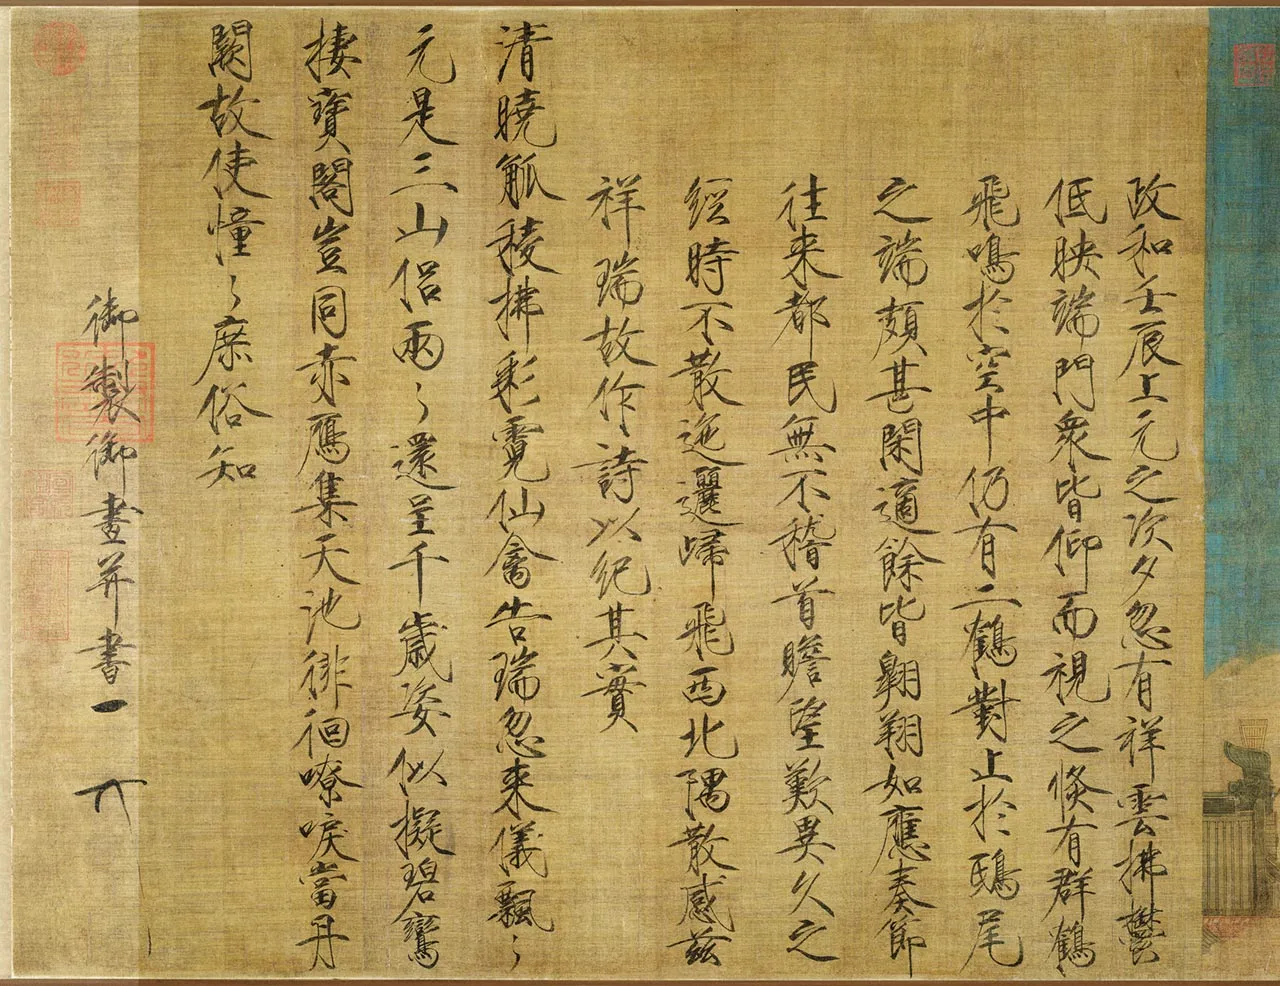 政和壬辰上元之次夕忽有祥雲拂鬱
低映端門衆皆仰而視之倐有群鶴
飛鳴於空中仍有二鶴對止於鴟尾
之端頗甚閑適餘皆翱翔如應奏節
往来都民無不稽首瞻望歎異久之
經時不散迤邐歸飛西北隅散感茲
祥瑞故作詩以紀其實
清曉觚稜拂彩霓仙禽告瑞忽来儀飄〻
元是三山侶兩〻還呈千歳姿似擬碧鸞
棲寶閣豈同赤鴈集天池徘徊嘹唳當丹
闕故使憧〻庶俗知
御製御畫并書